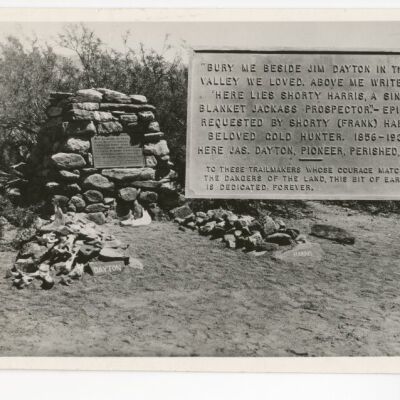 "BURY ME BESIDE JIM DAYTON IN TH
VALLEY WE LOVED. ABOVE ME WRITE:
'HERE LIES SHORTY HARRIS, A SIN
BLANKET JACKASS PROSPECTOR'" – EPI
REQUESTED BY SHORTY (FRANK) HAR
BELOVED GOLD HUNTER. 1856–193
HERE JAS. DAYTON, PIONEER, PERISHED,
TO THESE TRAILMAKERS WHOSE COURAGE MATC
THE DANGERS OF THE LAND, THIS BIT OF EAR
IS DEDICATED. FOREVER.
DAYTON
HARRIS